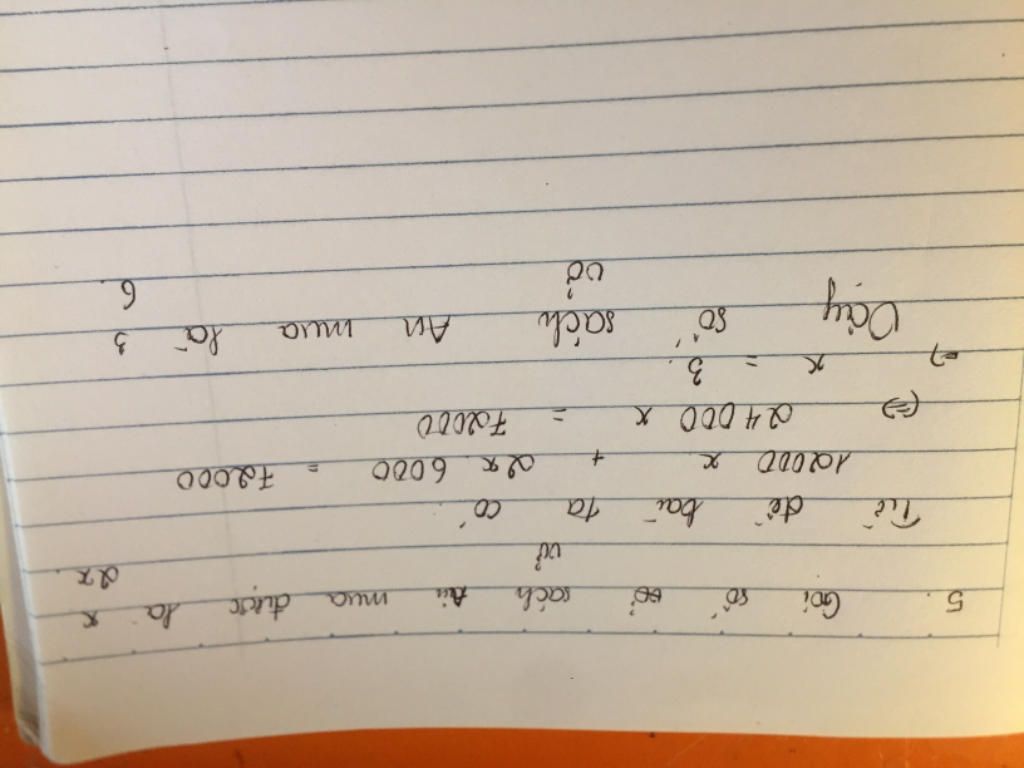 5. Gọi số sách An mua được là x
vở 2x.
Từ đề bài ta có:
12000 x + 2x. 6000 = 72000
(=) 24000 x = 72000
=> x = 3.
Vậy số sách An mua là 3
vở 6.